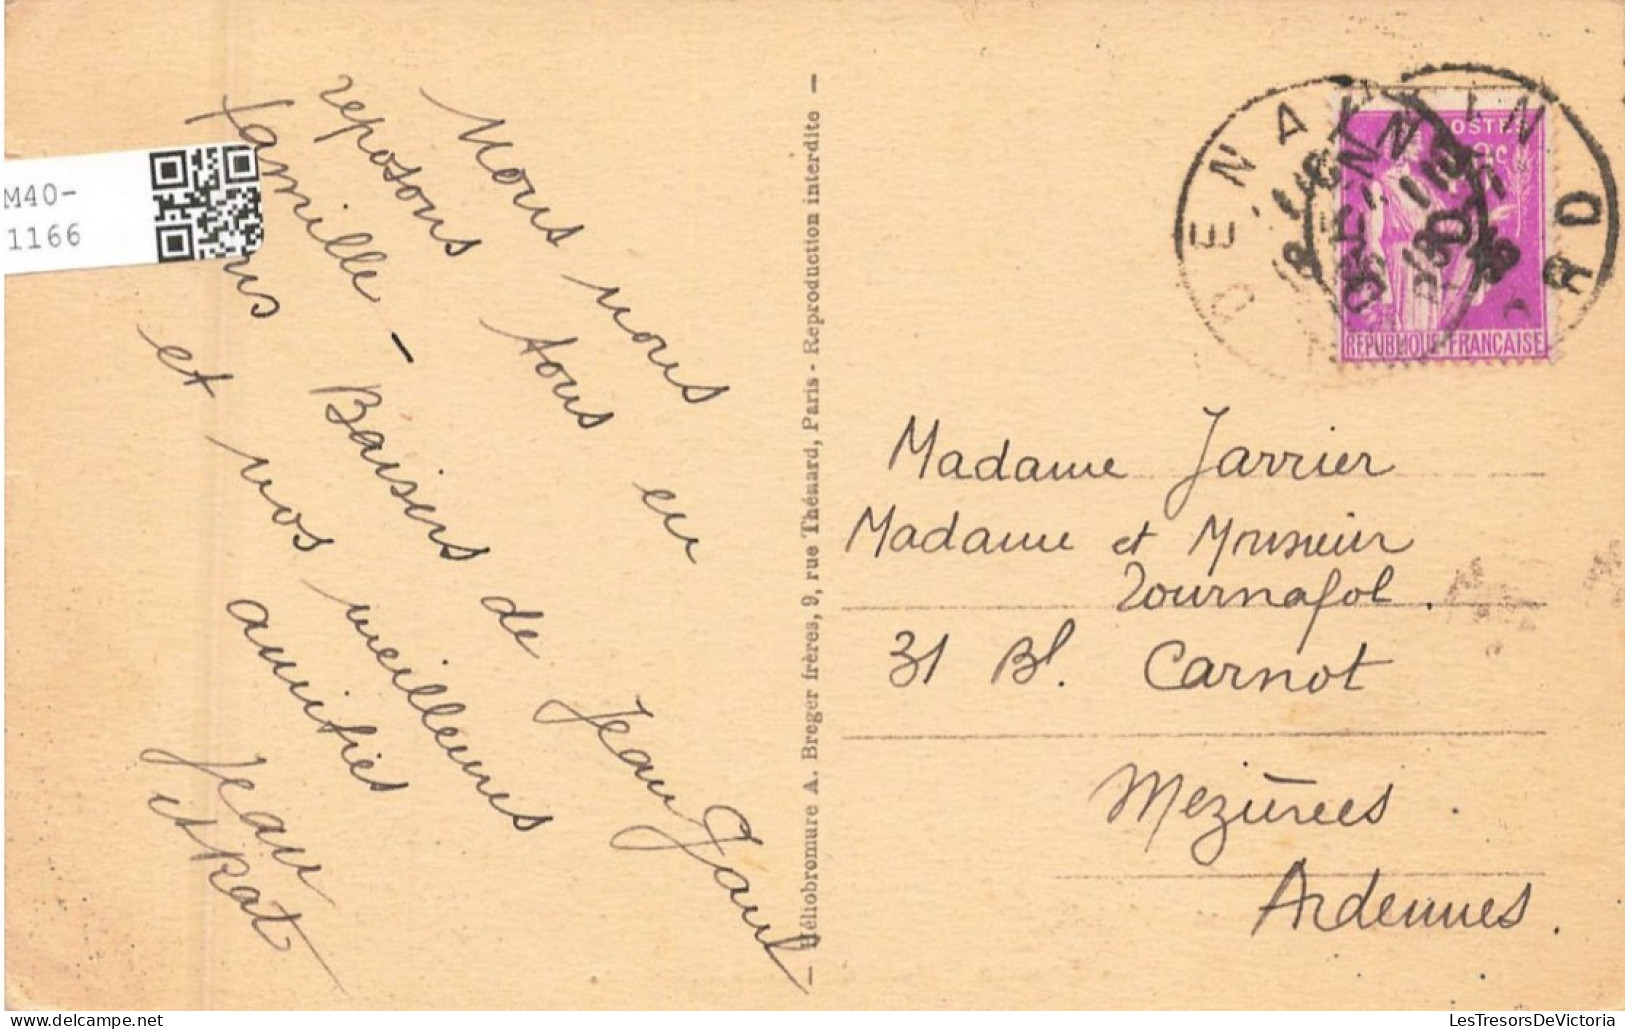 Nous nous
reposons tous en
famille - Baisers de Jean Paul
et nos meilleures
amitiés
Jean
et Kat
— Héliobromure A. Breger frères, 9, rue Thénard, Paris - Reproduction interdite —
DENAIN
RD
POSTES
REPUBLIQUE FRANÇAISE
Madame Jarrier
Madame et Monsieur
Tournafol.
31 Bd. Carnot
Mézières.
Ardennes.
M40-
1166
LesTresorsDeVictoria